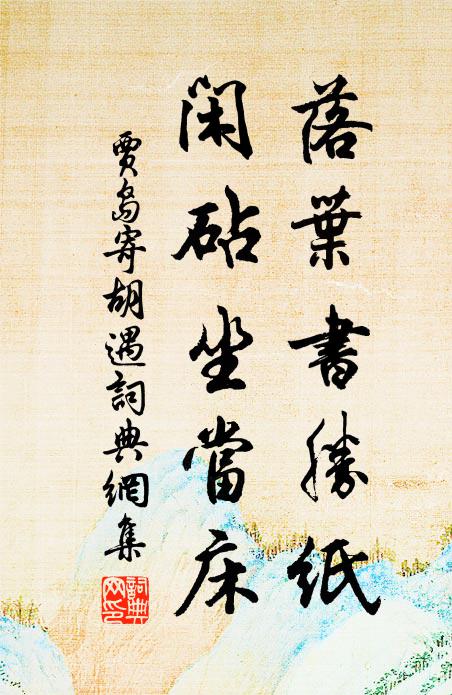 落葉書勝紙
閑砧坐當床
賈島寄胡遇詞典網集
詞典網印